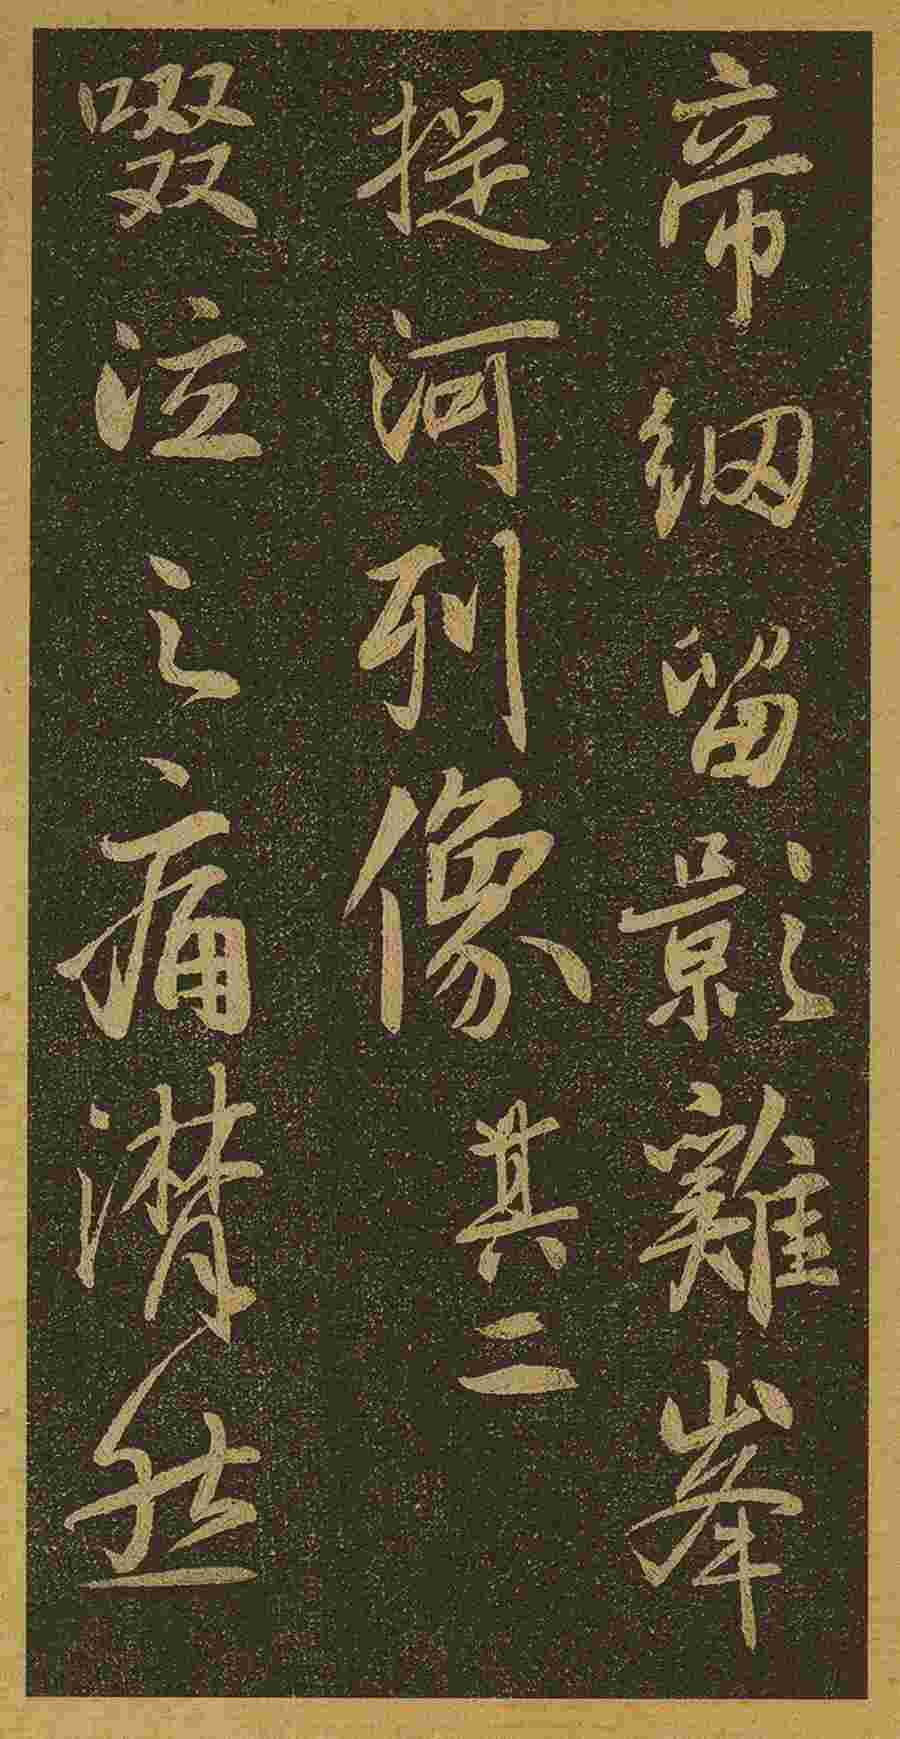 帝網留影難峯
提河列像其二
啜泣之痛潸然